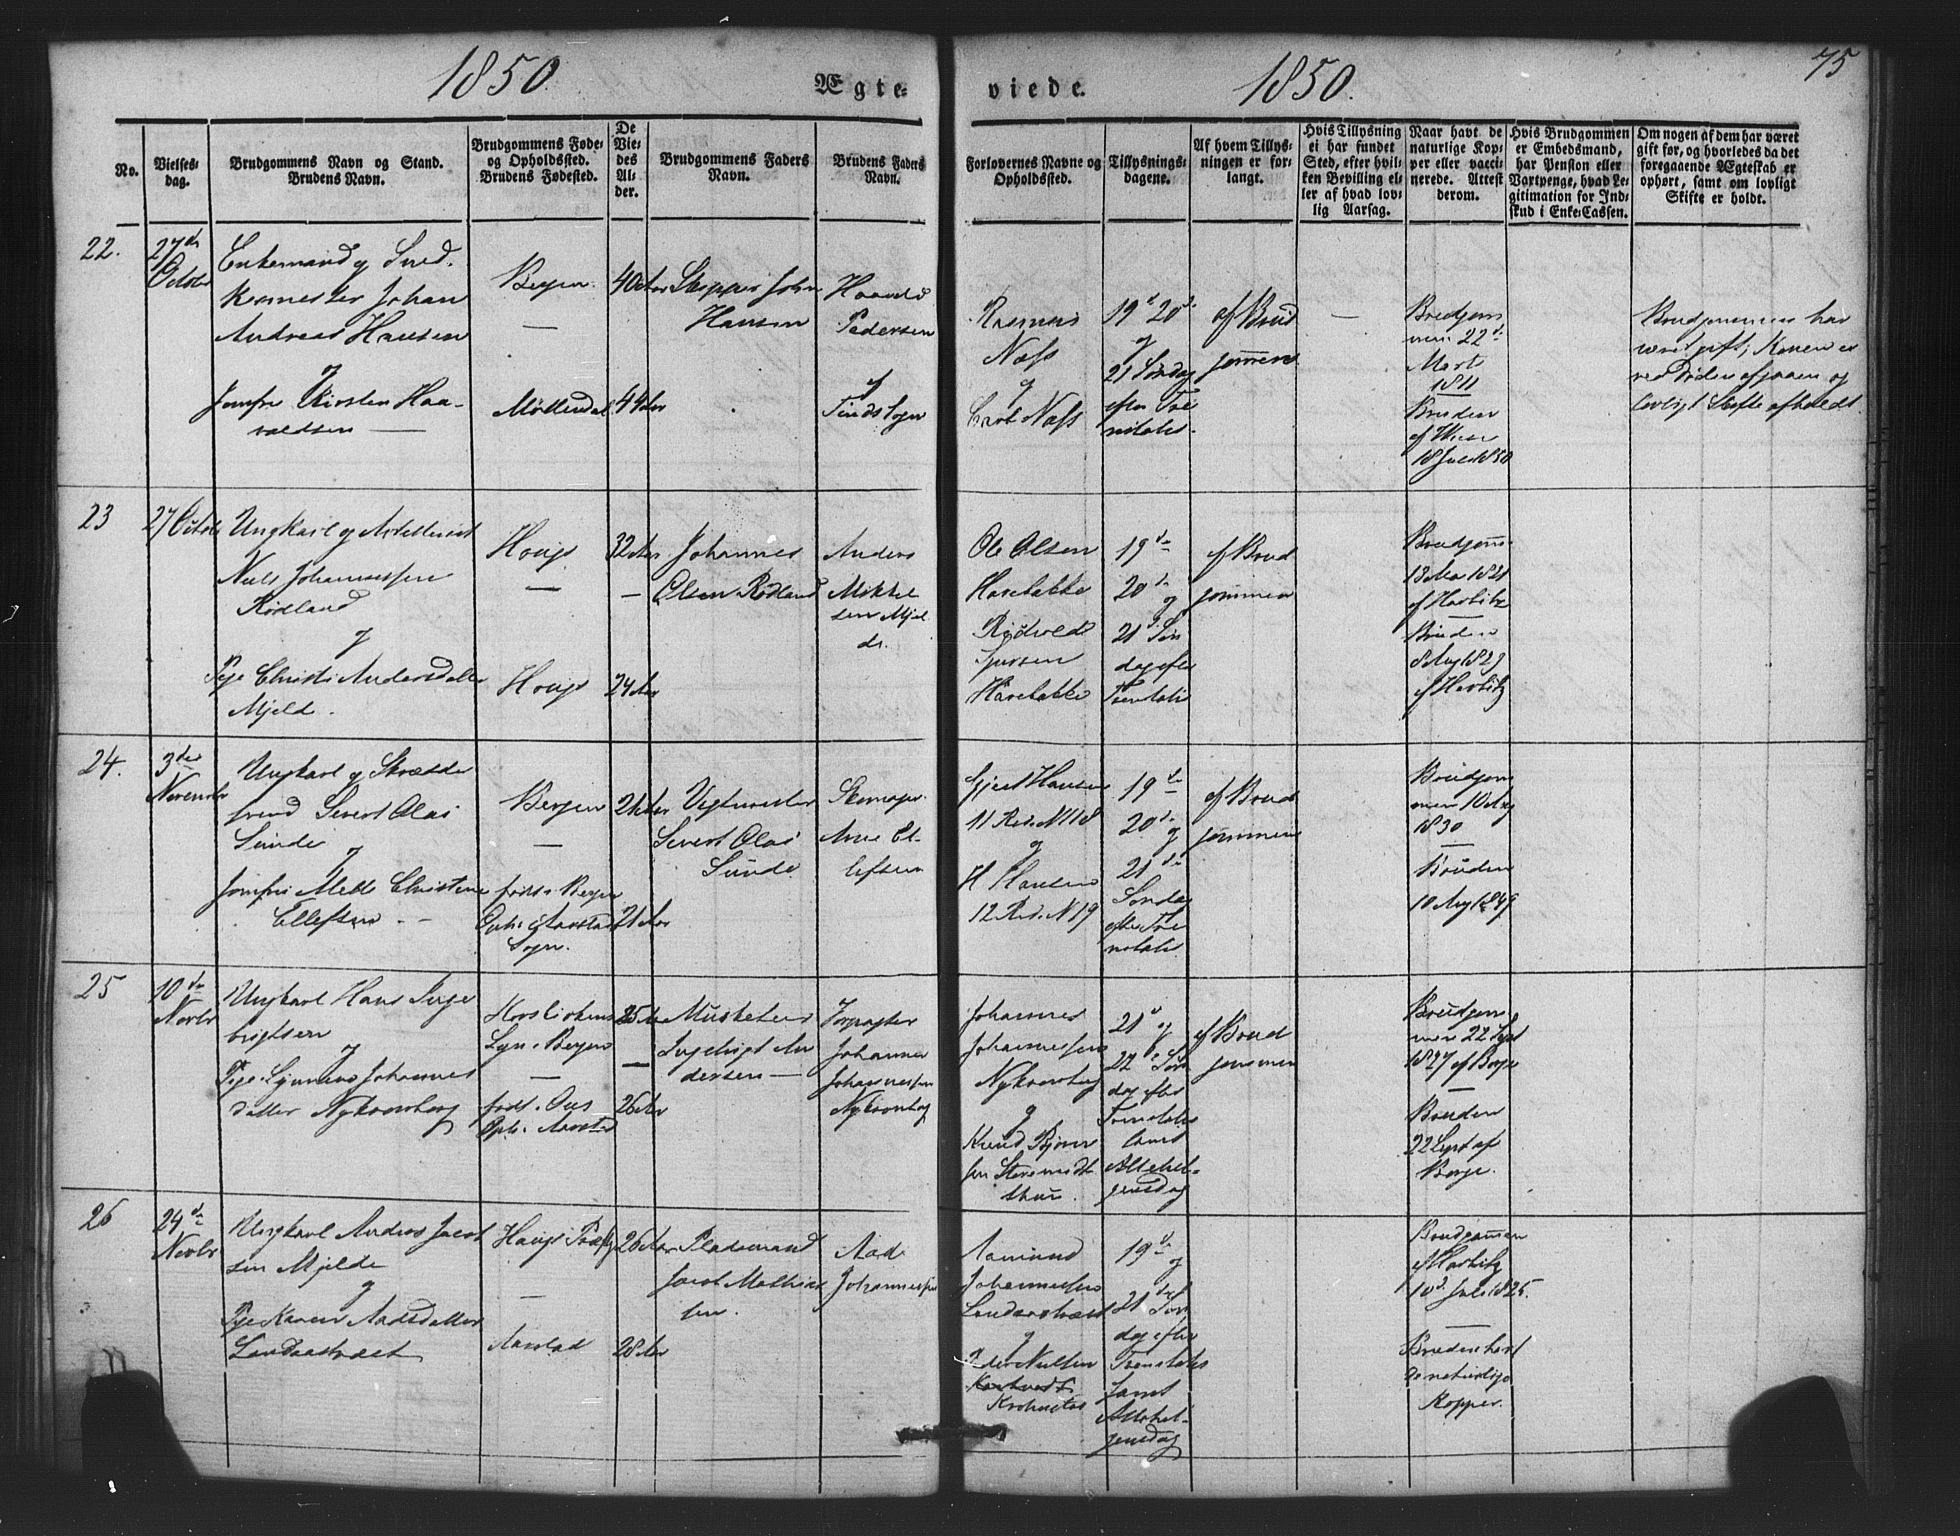 1850.
Ægte-
viede.
1850.
75
No.
Vielses-
dag.
Brudgommens Navn og Stand.
Brudens Navn.
Brudgommens Føde-
og Opholdssted.
Brudens Fødested.
De
Vie-
des
Al-
der.
Brudgommens Faders
Navn.
Brudens Faders
Navn.
Forlovernes Navne og
Opholdssted.
Tillysnings-
dagene.
Af hvem Tillys-
ningen er for-
langt.
Hvis Tillysning
ei har fundet
Sted, efter hvil-
ken Bevilling el-
ler af hvad lov-
lig Aarsag.
Naar havt de
naturlige Kop-
per eller vacci-
nerede. Attest
derom.
Hvis Brudgommen
er Embedsmand,
har Pension eller
Vartpenge, hvad Le-
gitimation for Ind-
skud i Enke-Cassen.
Om nogen af dem har været
gift før, og hvorledes da det
foregaaende Ægteskab er
ophørt, samt om lovligt
Skifte er holdt.
22.
27de
October
Enkemand og Sned-
kermester Johan
Andreas Hansen
og
Jomfru Kirsten Haa-
valdsen
Bergen
Møllendal
40 Aar
44 Aar
Skipper John
Hansen
Pedersen
og
Rasmus
Næss
og
Næss
19de 20de
og
21 Søndag
efter Tri-
nitatis
af Brud
gommen
Brudgom
men 22de
Marts
1811
Bruden
af Wiese
18 Juli 1850
Brudgommen har
været gift; Konen er
ved Døden afgaaen og
lovligt Skifte afholdt.
23
27 Octob
Ungkarl og Artillerist
Niels Johannessen
Rødland
og
Pige Christi Andersdatter
Mjeld.
Hougs
Hougs
32 Aar
24 Aar
Johannes
Olsen Rødland
Anders
Mikkel
sen Mjel
de.
Ole Olsen
19de
20de
og
21de Søn
dag efter
Trinitatis
af Brud
gommen
Brudgom
13 Mai 1821
af Harbitz
Bruden
8 Aug 1829
af Harbitz
24.
3die
Novembr
Ungkarl og Skrædder
svend Sivert Olai
Sunde
og
Jomfru Mette Christine
Ellefsen
Bergen
født i Bergen
Oph: i Aarstad
Sogn.
21 Aar
21 Aar
Sivert Olai
Sunde
Arne El-
lefsen
Gjert Hansen
11 Rod. N 118
og
H Hansen
12 Rod. N 19
19de
20de
og
21de
Søndag
efter Tri
nitatis
af Brud
gommen
Brudgom
men 10 Aug
1830
Bruden
10 Aug 1849
25
10de
Novbr
Ungkarl Hans Inge
brigtsen
og
Johannes
datter Nykronborg
Korskirkens
Sogn Bergen
født i Ous
Oph. Aarstad
25 Aar
26 Aar
Musketeer
Ingebrigt An
dersen
Forpagter
Johannes
Johannessen
Nykronborg
Johannes
Johannessen
Nykronborg
og
Knud
21de og
22de Søn
dag efter
Trinitatis
samt
Allehel-
gensdag
af Brud
gommen
Brudgom
men 22 Sept
1827 af Børge
Bruden
22 Sept af
Børge.
26
24de
Novbr
Ungkarl Anders Jacob
sen Mjelde
og
Pige Karen Aadsdatter
Landaastræet
Hougs Præstg
Aarstad
26 Aar
28 Aar
Pladsmand
Jacob Mathias
sen.
Aad
Johannessen
Aamund
Johannessen
Landaastræet
og
Peder Nielsen
Krohnstad
19de
og
21de Søn
dag efter
Trinitatis
samt
Allehel-
gensdag
Brudgommen
af Harbitz
10de Juli 1825.
Bruden havt
de naturlige
Kopper.